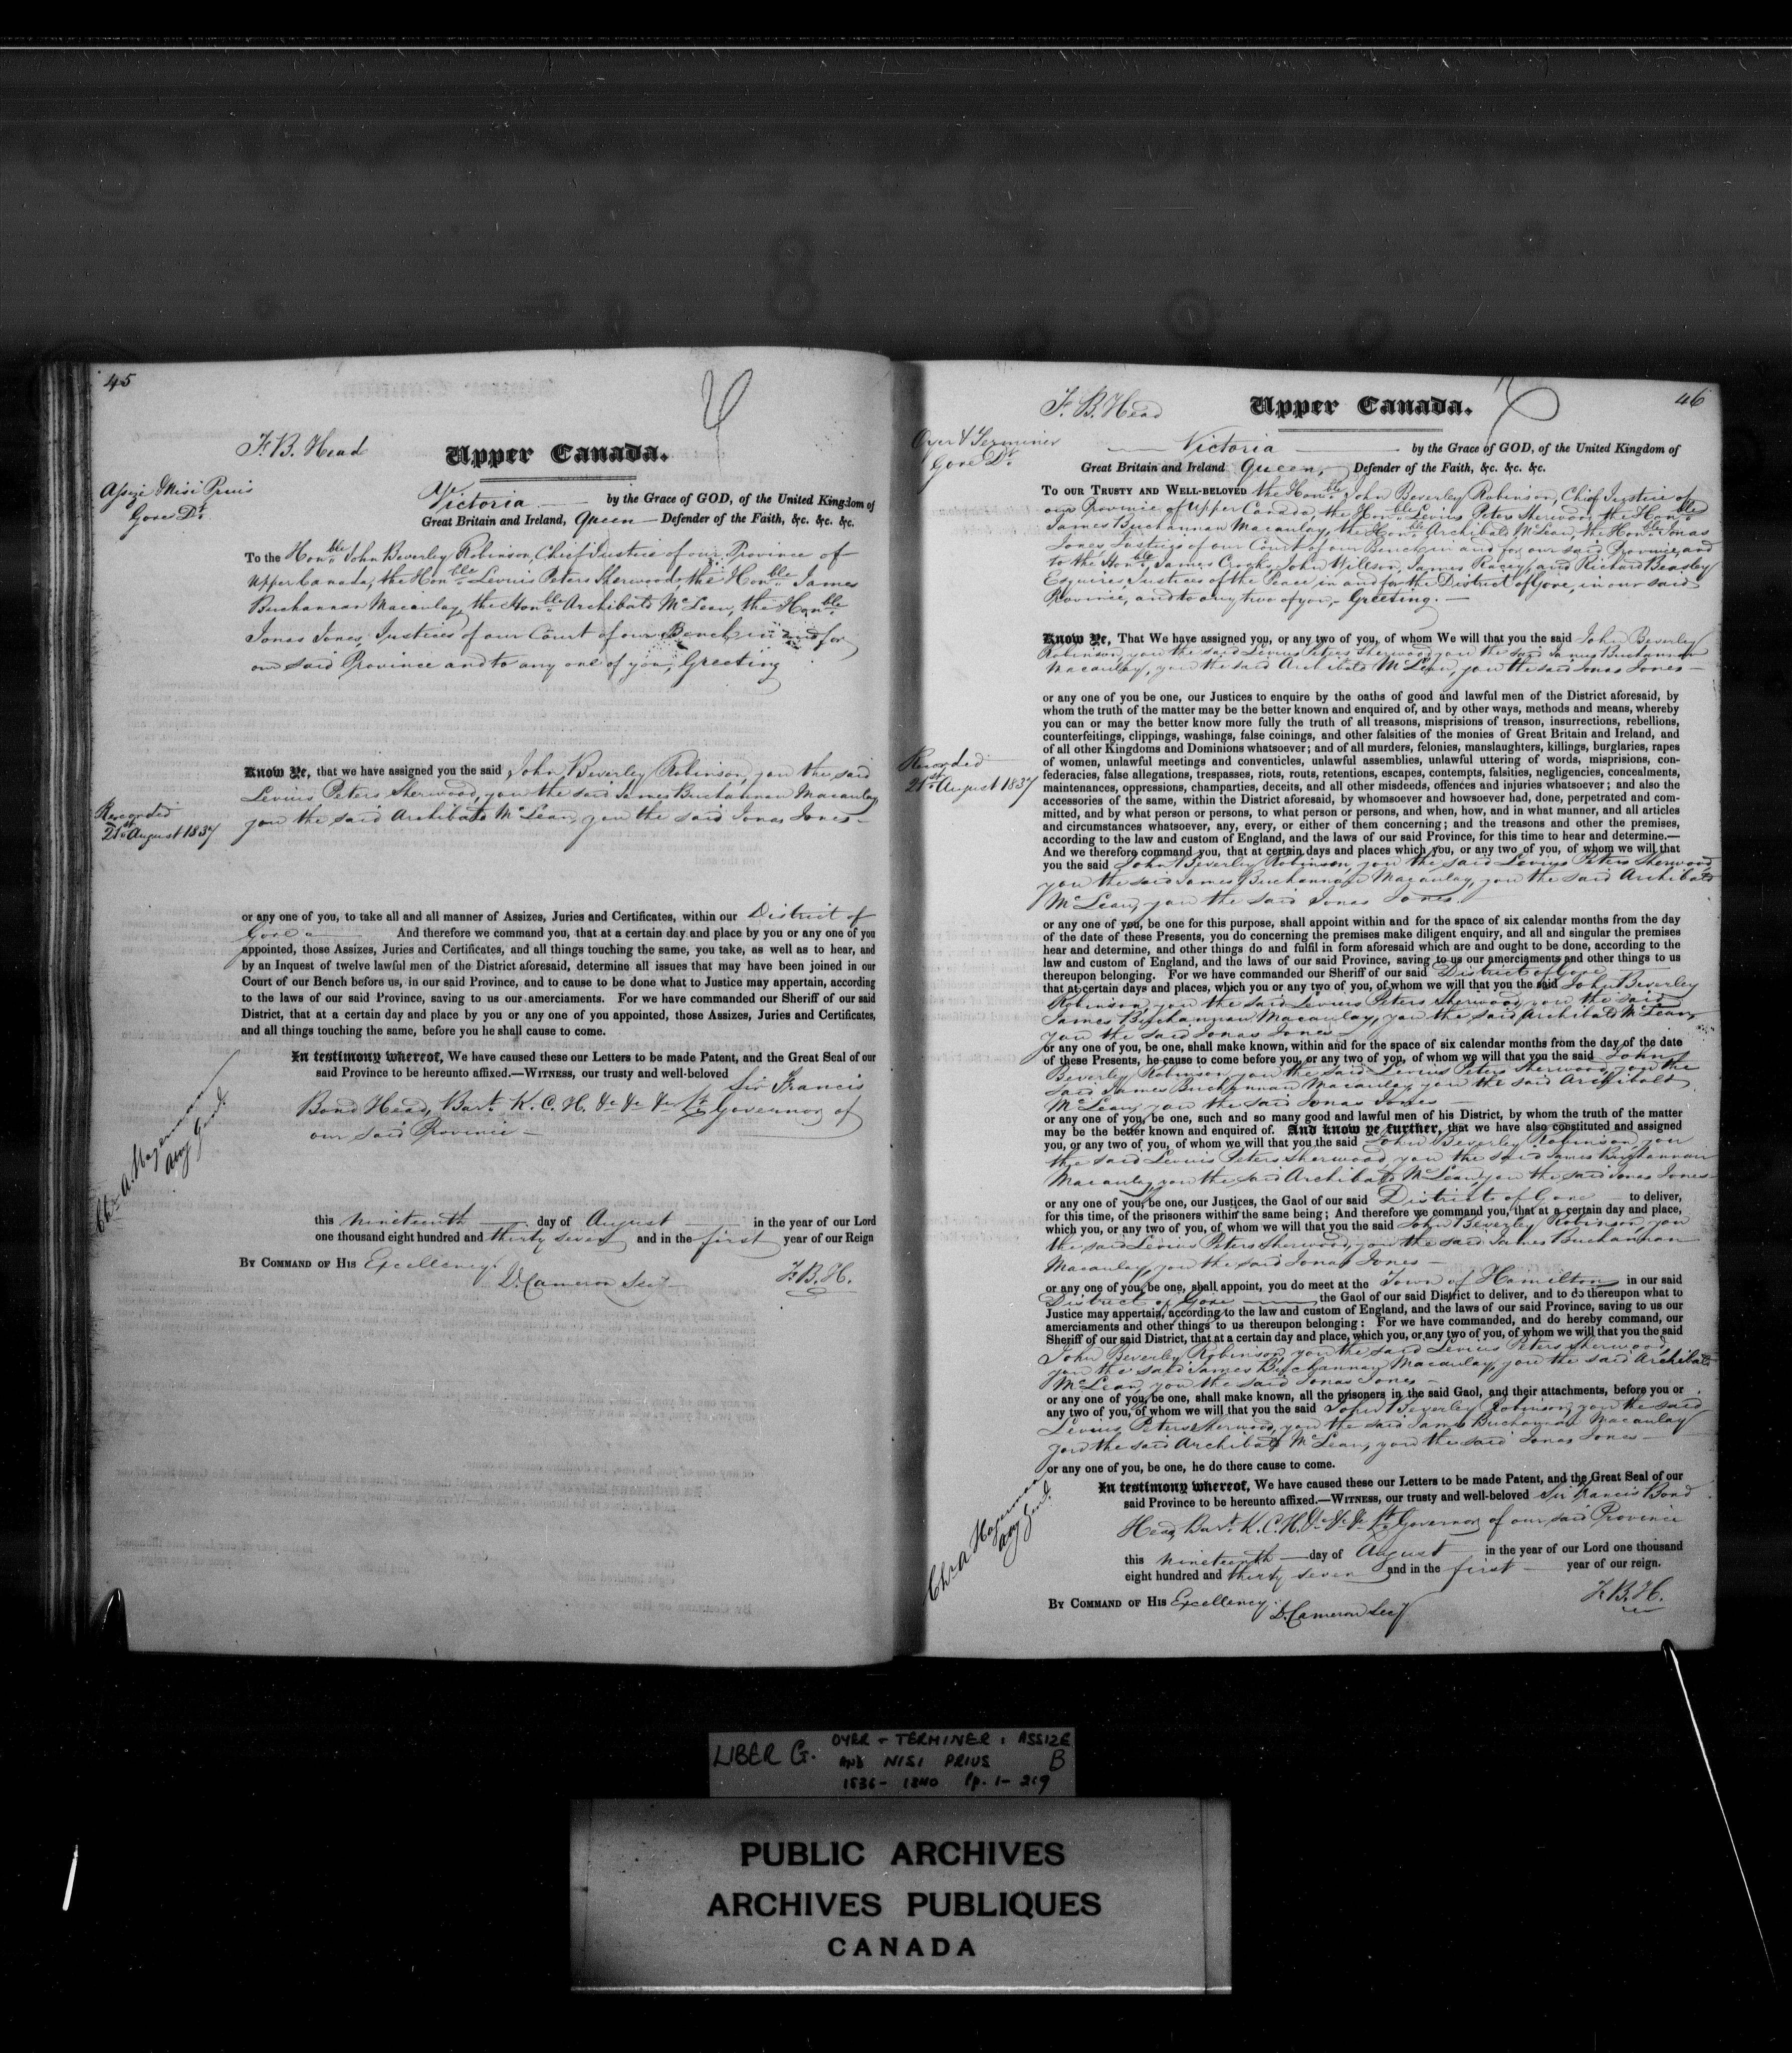 45
F. B. Head
Upper Canada.
Assize & Nisi Prius
Gore Dt.
Victoria — by the Grace of GOD, of the United Kingdom of
Great Britain and Ireland, Queen — Defender of the Faith, &c. &c. &c.
To the Honble. John Beverley Robinson, Chief Justice of our Province of
Upper Canada, the Honble. Levius Peters Sherwood, the Honble. James
Buchannan Macaulay, the Honble. Archibald McLean, the Honble.
Jonas Jones, Justices of our Court of our Bench in and for
our said Province and to any one of you, Greeting
Know Ye, that we have assigned you the said John Beverley Robinson, you the said
Levius Peters Sherwood, you the said James Buchannan Macaulay,
you the said Archibald McLean, you the said Jonas Jones —
Recorded
21st August 1837
or any one of you, to take all and all manner of Assizes, Juries and Certificates, within our District of
Gore — And therefore we command you, that at a certain day and place by you or any one of you
appointed, those Assizes, Juries and Certificates, and all things touching the same, you take, as well as to hear, and
by an Inquest of twelve lawful men of the District aforesaid, determine all issues that may have been joined in our
Court of our Bench before us, in our said Province, and to cause to be done what to Justice may appertain, according
to the laws of our said Province, saving to us our amerciaments. For we have commanded our Sheriff of our said
District, that at a certain day and place by you or any one of you appointed, those Assizes, Juries and Certificates,
and all things touching the same, before you he shall cause to come.
In testimony whereof, We have caused these our Letters to be made Patent, and the Great Seal of our
said Province to be hereunto affixed.—WITNESS, our trusty and well-beloved Sir Francis
Bond Head, Bart. K. C. H. &c &c &c Lt. Governor of
our said Province —
Chr. A. Hagerman
Atty Genl.
this nineteenth — day of August — in the year of our Lord
one thousand eight hundred and thirty seven and in the first year of our Reign
BY COMMAND OF HIS Excellency.
D. Cameron Secy
F. B. H.
46
F. B. Head
Upper Canada.
Oyer & Terminer
Gore Dt.
Victoria — by the Grace of GOD, of the United Kingdom of
Great Britain and Ireland Queen, Defender of the Faith, &c. &c. &c.
TO OUR TRUSTY AND WELL-BELOVED the Honble. John Beverley Robinson, Chief Justice of
our Province of Upper Canada, the Honble. Levius Peters Sherwood, the Honble.
James Buchannan Macaulay, the Honble. Archibald McLean, the Honble. Jonas
Jones, Justices of our Court of our Bench in and for our said Province, and
to the Honble. James Crooks, John Willson, James Racey, and Richard Beasley
Esquires, Justices of the Peace in and for the District of Gore, in our said
Province, and to any two of you, Greeting. —
Know Ye, That We have assigned you, or any two of you, of whom We will that you the said John Beverley
Robinson, you the said Levius Peters Sherwood, you the said James Buchannan
Macaulay, you the said Archibald McLean, you the said Jonas Jones —
or any one of you be one, our Justices to enquire by the oaths of good and lawful men of the District aforesaid, by
whom the truth of the matter may be the better known and enquired of, and by other ways, methods and means, whereby
you can or may the better know more fully the truth of all treasons, misprisions of treason, insurrections, rebellions,
counterfeitings, clippings, washings, false coinings, and other falsities of the monies of Great Britain and Ireland, and
of all other Kingdoms and Dominions whatsoever; and of all murders, felonies, manslaughters, killings, burglaries, rapes
of women, unlawful meetings and conventicles, unlawful assemblies, unlawful uttering of words, misprisions, con-
federacies, false allegations, trespasses, riots, routs, retentions, escapes, contempts, falsities, negligencies, concealments,
maintenances, oppressions, champarties, deceits, and all other misdeeds, offences and injuries whatsoever; and also the
accessories of the same, within the District aforesaid, by whomsoever and howsoever had, done, perpetrated and com-
mitted, and by what person or persons, to what person or persons, and when, how, and in what manner, and all articles
and circumstances whatsoever, any, every, or either of them concerning; and the treasons and other the premises,
according to the law and custom of England, and the laws of our said Province, for this time to hear and determine.—
And we therefore command you, that at certain days and places which you, or any two of you, of whom we will that
you the said John Beverley Robinson, you the said Levius Peters Sherwood,
you the said James Buchannan Macaulay, you the said Archibald
McLean, you the said Jonas Jones.
Recorded
21st August 1837
or any one of you, be one for this purpose, shall appoint within and for the space of six calendar months from the day
of the date of these Presents, you do concerning the premises make diligent enquiry, and all and singular the premises
hear and determine, and other things do and fulfil in form aforesaid which are and ought to be done, according to the
law and custom of England, and the laws of our said Province, saving to us our amerciaments and other things to us
thereupon belonging. For we have commanded our Sheriff of our said District of Gore —
that at certain days and places, which you or any two of you, of whom we will that you the said John Beverley
Robinson, you the said Levius Peters Sherwood, you the said
James Buchannan Macaulay, you the said Archibald McLean,
you the said Jonas Jones —
or any one of you, be one, shall make known, within and for the space of six calendar months from the day of the date
of these Presents, he cause to come before you, or any two of you, of whom we will that you the said John
Beverley Robinson, you the said Levius Peters Sherwood, you the
said James Buchannan Macaulay, you the said Archibald
McLean, you the said Jonas Jones —
or any one of you, be one, such and so many good and lawful men of his District, by whom the truth of the matter
may be the better known and enquired of. And know ye further, that we have also constituted and assigned
you, or any two of you, of whom we will that you the said John Beverley Robinson, you
the said Levius Peters Sherwood, you the said James Buchannan
Macaulay, you the said Archibald McLean, you the said Jonas Jones —
or any one of you, be one, our Justices, the Gaol of our said District of Gore — to deliver,
for this time, of the prisoners within the same being; And therefore we command you, that at a certain day and place,
which you, or any two of you, of whom we will that you the said John Beverley Robinson, you
the said Levius Peters Sherwood, you the said James Buchannan
Macaulay, you the said Jonas Jones —
or any one of you, be one, shall appoint, you do meet at the Town of Hamilton in our said
District of Gore — the Gaol of our said District to deliver, and to do thereupon what to
Justice may appertain, according to the law and custom of England, and the laws of our said Province, saving to us our
amerciaments and other things to us thereupon belonging: For we have commanded, and do hereby command, our
Sheriff of our said District, that at a certain day and place, which you, or any two of you, of whom we will that you the said
John Beverley Robinson, you the said Levius Peters Sherwood,
you the said James Buchannan Macaulay, you the said Archibald
McLean, you the said Jonas Jones —
or any one of you, be one, shall make known, all the prisoners in the said Gaol, and their attachments, before you or
any two of you, of whom we will that you the said John Beverley Robinson, you the said
Levius Peters Sherwood, you the said James Buchannan Macaulay
you the said Archibald McLean, you the said Jonas Jones —
or any one of you, be one, he do there cause to come.
In testimony whereof, We have caused these our Letters to be made Patent, and the Great Seal of our
said Province to be hereunto affixed.—WITNESS, our trusty and well-beloved Sir Francis Bond
Head, Bart. K. C. H. &c &c &c Lt. Governor of our said Province
Chr. A Hagerman
Atty Genl.
this nineteenth — day of August — in the year of our Lord one thousand
eight hundred and thirty seven and in the first — year of our reign.
BY COMMAND OF HIS Excellency.
D. Cameron Secy
F. B. H.
LIBER G. OYER + TERMINER: ASSIZE
AND NISI PRIUS B
1836 - 1840 Pp. 1 - 219
PUBLIC ARCHIVES
ARCHIVES PUBLIQUES
CANADA